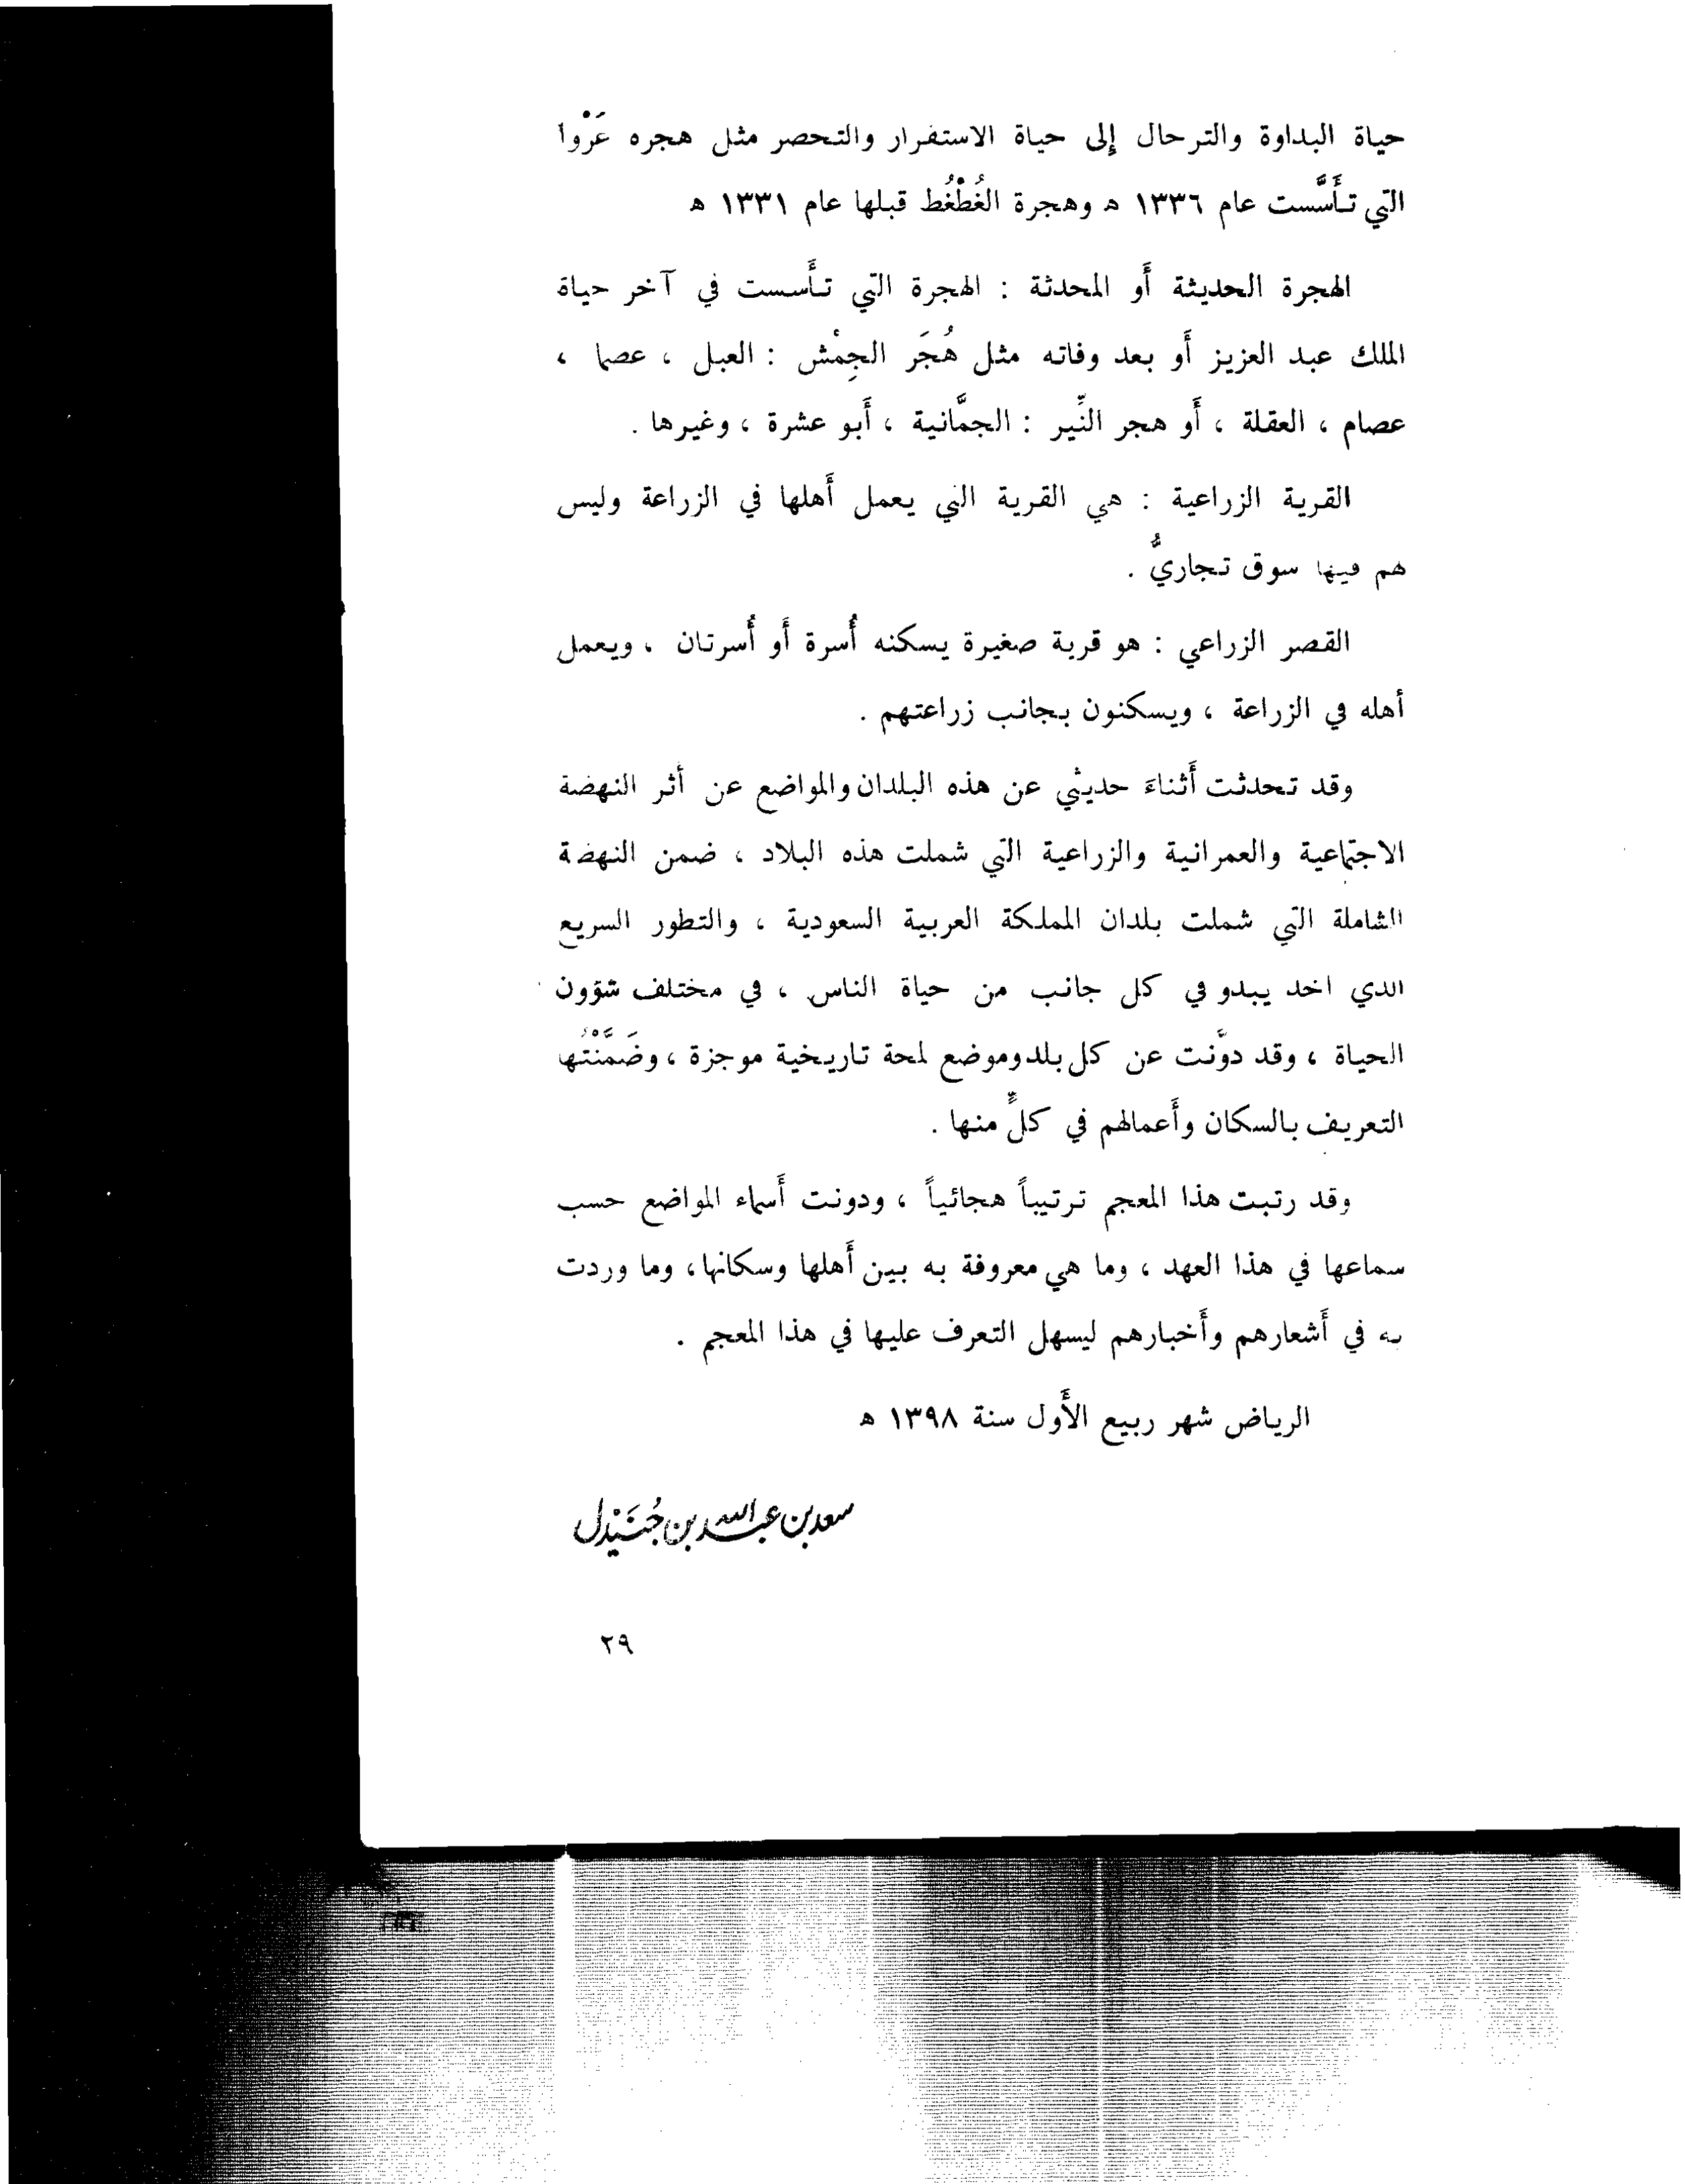 حياة البداوة والترحال إلى حياة الاستقرار والتحضر مثل هجرة عَرْوا
التي تأَسَّست عام ١٣٣٦ ه وهجرة الغُطْغُط قبلها عام ١٣٣١ ه
الهجرة الحديثة أَو المحدثة : الهجرة التي تأَسست في آخر حياة
الملك عبد العزيز أَو بعد وفاته مثل هُجَر الجِمْش : العبل ، عصما ،
عصام ، العقلة ، أَو هجر النِّير : الجمَّانية ، أَبو عشرة ، وغيرها .
القرية الزراعية : هي القرية التي يعمل أَهلها في الزراعة وليس
لهم فيها سوق تجاريٌّ .
القصر الزراعي : هو قرية صغيرة يسكنه أُسرة أَو أُسرتان ، ويعمل
أهله في الزراعة ، ويسكنون بجانب زراعتهم .
وقد تحدثت أَثناءَ حديثي عن هذه البلدان والمواضع عن أثر النهضة
الاجتماعية والعمرانية والزراعية التي شملت هذه البلاد ، ضمن النهضة
الشاملة التي شملت بلدان المملكة العربية السعودية ، والتطور السريع
الذي اخذ يبدو في كل جانب من حياة الناس ، في مختلف شؤون
الحياة ، وقد دوَّنت عن كل بلد وموضع لمحة تاريخية موجزة ، وضَمَّنْتُها
التعريف بالسكان وأَعمالهم في كلٍّ منها .
وقد رتبت هذا المعجم ترتيباً هجائياً ، ودونت أَسماء المواضع حسب
سماعها في هذا العهد ، وما هي معروفة به بين أَهلها وسكانها ، وما وردت
به في أَشعارهم وأَخبارهم ليسهل التعرف عليها في هذا المعجم .
الرياض شهر ربيع الأَول سنة ١٣٩٨ ه
سعد بن عبد الله بن جُنَيْدِل
٢٩